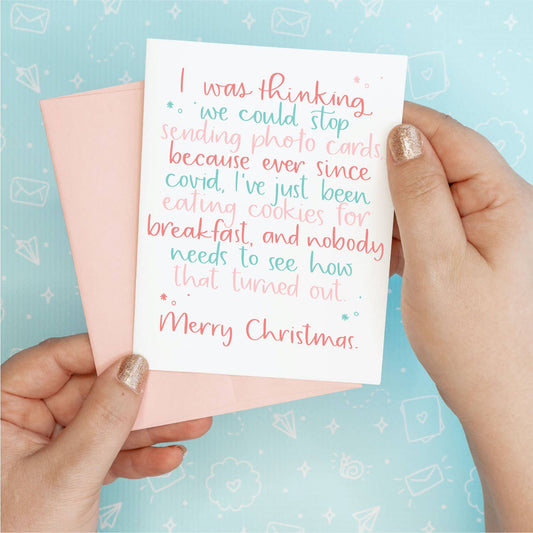 I was thinking
we could stop
sending photo cards,
because ever since
covid, I've just been
eating cookies for
breakfast, and nobody
needs to see how
that turned out.
Merry Christmas.